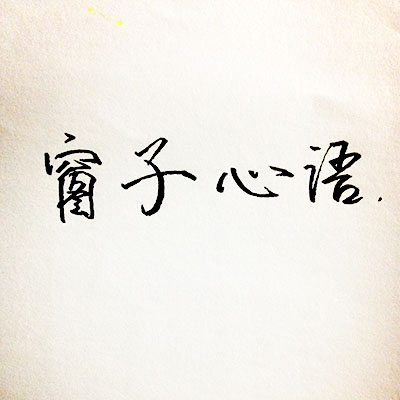 窗子心语.